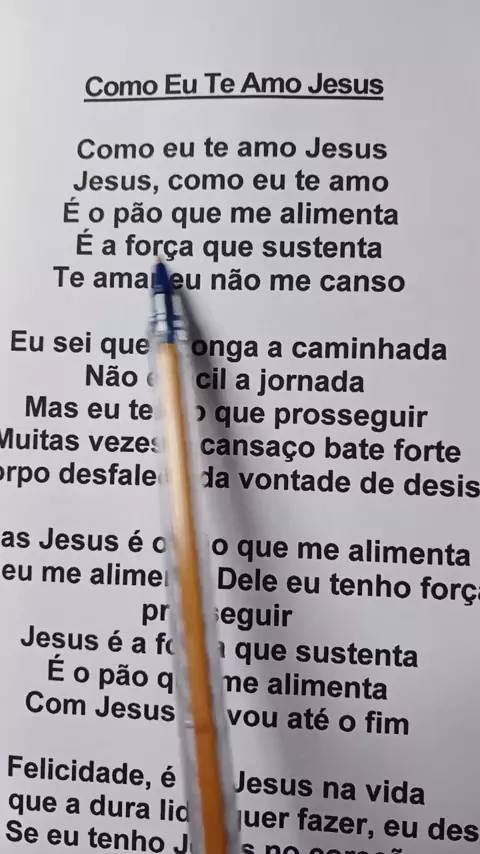 Como Eu Te Amo Jesus
Como eu te amo Jesus
Jesus, como eu te amo
É o pão que me alimenta
É a força que sustenta
Te amar eu não me canso
Eu sei que longa a caminhada
Não cil a jornada
Mas eu te o que prosseguir
Muitas vezes cansaço bate forte
orpo desfale da vontade de desis
as Jesus é o que me alimenta
eu me alime Dele eu tenho forç
pr seguir
Jesus é a força que sustenta
É o pão que me alimenta
Com Jesus vou até o fim
Felicidade, é Jesus na vida
que a dura lid quer fazer, eu des
Se eu tenho J s no coração